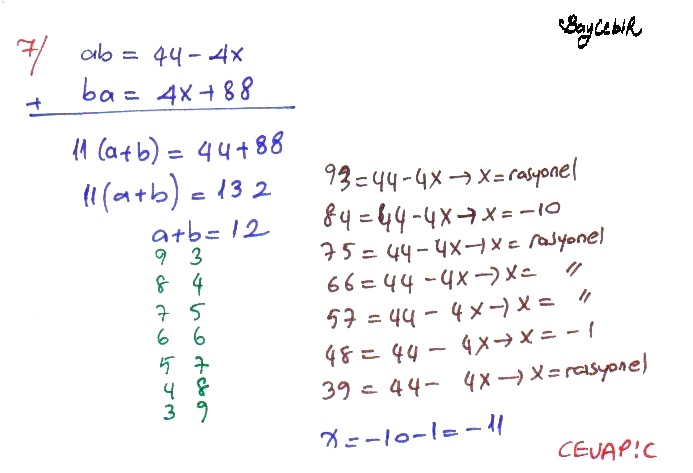 BayCebiR
7/ ab = 44 - 4x
+ ba = 4x + 88
11(a+b) = 44+88
11(a+b) = 132
a+b = 12
9 3
8 4
7 5
6 6
5 7
4 8
3 9
93 = 44 - 4x → x = rasyonel
84 = 44 - 4x → x = -10
75 = 44 - 4x → x = rasyonel
66 = 44 - 4x → x = "
57 = 44 - 4x → x = "
48 = 44 - 4x → x = -1
39 = 44 - 4x → x = rasyonel
x = -10 - 1 = -11
CEVAP:C